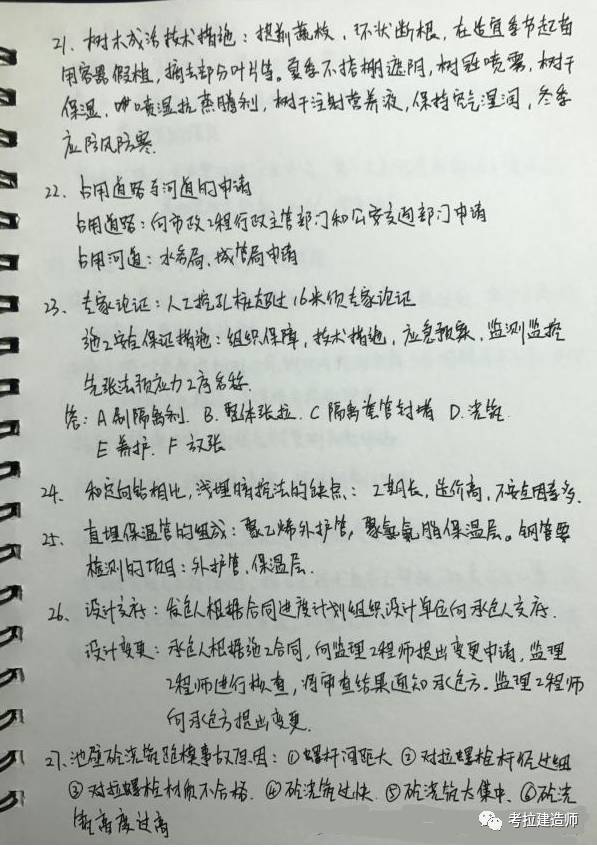 21、树木成活技术措施：提前疏枝，环状断根，在适宜季节起苗
用容器假植，摘去部分叶片等。夏季不搭棚遮阴，树冠喷雾，树干
保湿，喷湿抗蒸腾剂，树干注射营养液，保持空气湿润，冬季
应防风防寒.
22、占用道路与河道的申请
占用道路：向市政工程行政主管部门和公安交通部门申请
占用河道：水务局、城管局申请
23、专家论证：人工挖孔桩超过16米须专家论证
施工安全保证措施：组织保障，技术措施，应急预案，监测监控
先张法预应力工序名称.
答：A 刷隔离剂. B.整体张拉. C 隔离套管封堵 D.浇筑
E 养护. F 放张
24、和定向钻相比，浅埋暗挖法的缺点：工期长，造价高，不安全因素多.
25、直埋保温管的组成：聚乙烯外护管，聚氨氧脂保温层。钢管要
检测的项目：外护管、保温层.
26、设计交底：发包人根据合同进度计划组织设计单位向承包人交底.
设计变更：承包人根据施工合同，向监理工程师提出变更申请，监理
工程师进行核查，将审查结果通知承包方。监理工程师
向承包方提出变更.
27.池壁砼浇筑跑模事故原因：①螺杆间距大 ②对拉螺栓杆径过细
③对拉螺栓材质不合格. ④砼浇筑过快. ⑤砼浇筑太集中. ⑥砼浇
筑高度过高
考拉建造师